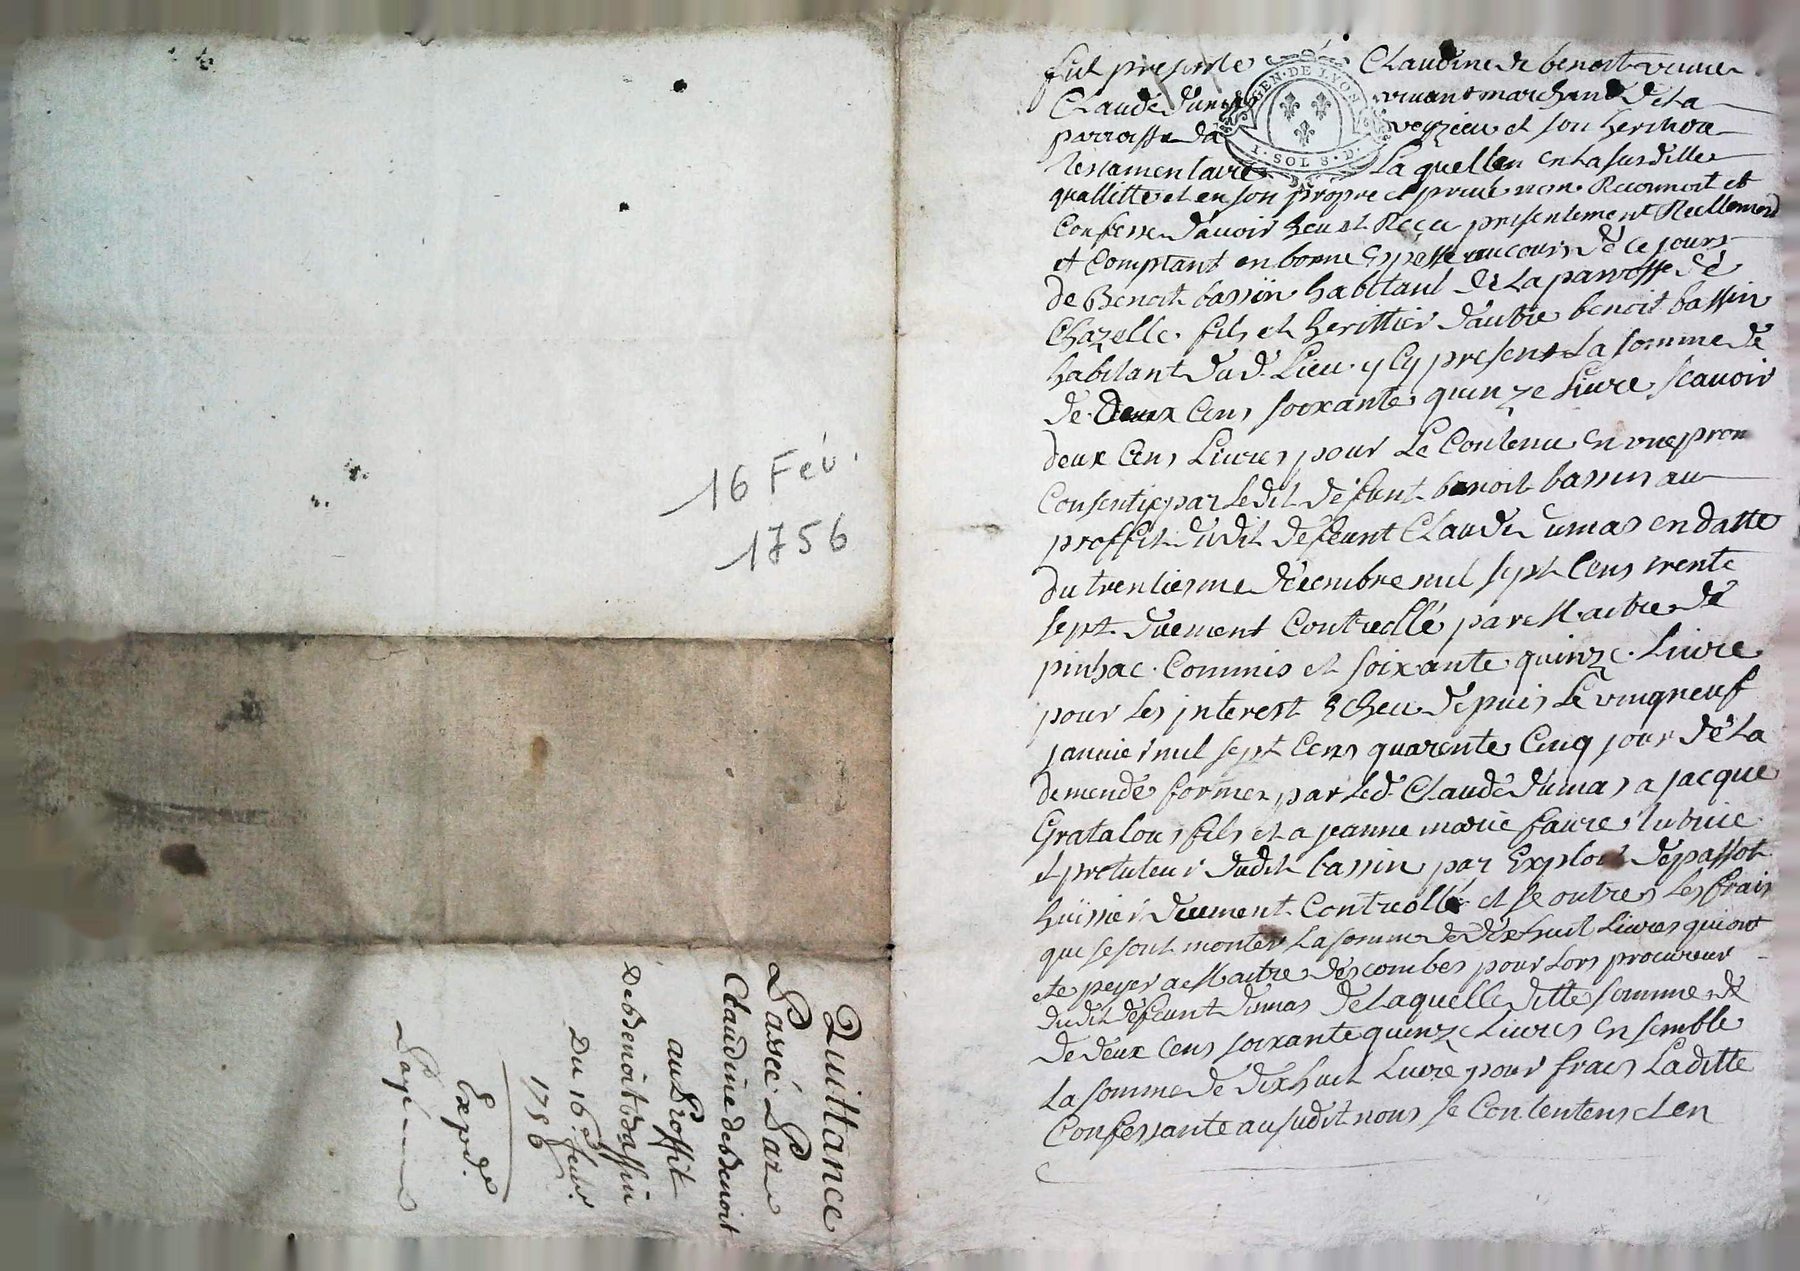 16 Fév.
1756
Quittance
Passée Par
Claudine de Benoit
au Proffit
De Benoit Bassin
Du 16e. fevr.
1756
Expd.
GEN · DE LYON
1 · SOL 8 · D ·
fut presente Claudine de benoit veuve
Claude dumas vivant marchand de La
parroisse de veyzieu et son heritiere
Testamentaire Laquelle en La susditte
quallitte et en son propre et privé nom Reconnoit et
Confesse d'avoir heu et Reçu presentement Reellement
et Comptant en bonne Espesse au cours de ce jours
de Benoit bassin habitant de La parroisse de
Chazelle fils et herittier d'autre benoit bassin
habitant du d. Lieu y Cy present La somme de
de Deux Cens soixante quinze Livre scavoir
deux Cens Livres pour Le Contenu en une prom
Consentie par Ledit défunt benoit bassin au
proffit dudit defeunt Claude dumas en datte
du trentiesme décembre mil sept Cens trente
sept duement Controllé par Maitre de
pinhac Commis et soixante quinze Livre
pour Les jnterest Echeu depuis Le vingneuf
janvier mil sept Cens quarente Cinq jour de La
demende former par Led. Claude dumas a jacque
Gratalou fils et a jeanne marie faure tutrice
et protuteur dudit bassin par Exploit de passot
huissier duement Controllé et se outres Les frais
que se sont monter La somme de dix huit Livres qui ont
ete peyer a Maitre descombes pour Lors procureur
dudit defeunt dumas de Laquelle ditte somme de
de deux cens soixante quinze Livres ensemble
La somme de dix huit Livre pour frais Laditte
Confessante au sudit nous se Contentens et en